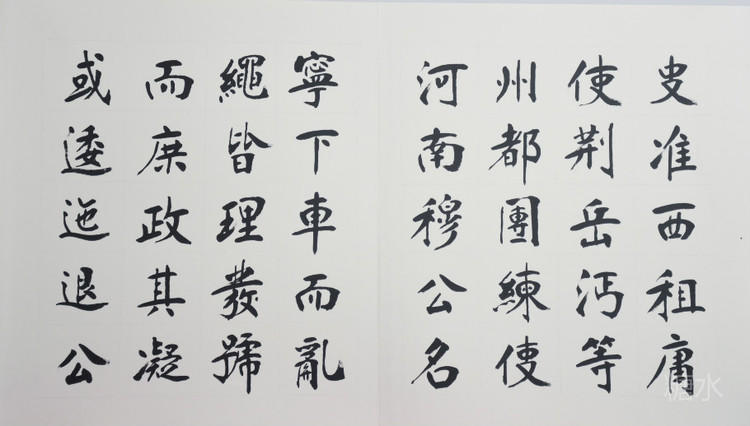 史准西租庸
使荆岳沔等
州都團練使
河南穆公名
寧下車而亂
繩皆理發號
而庶政其凝
或逶迤退公
糖水